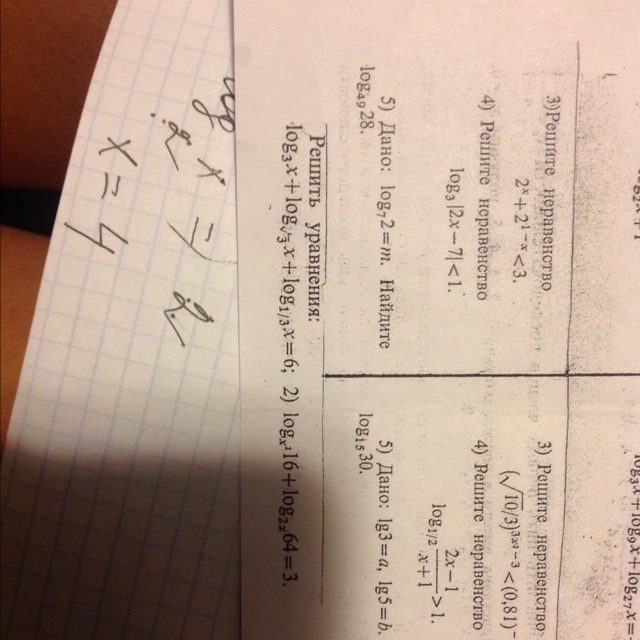 3)Решите неравенство
2ˣ+2¹⁻ˣ<3.
4) Решите неравенство
log₃|2x−7|<1.
5) Дано: log₇2=m. Найдите
log₄₉28.
3) Решите неравенство
(√10/3)^(3x²−3)<(0,81)
4) Решите неравенство
log₁/₂ (2x−1)/(x+1)>1.
5) Дано: lg3=a, lg5=b.
log₁₅30.
Решить уравнения:
log₃x+log_√₃x+log₁/₃x=6; 2) log_x²16+log₂ₓ64=3.
x = 2
2
x=4